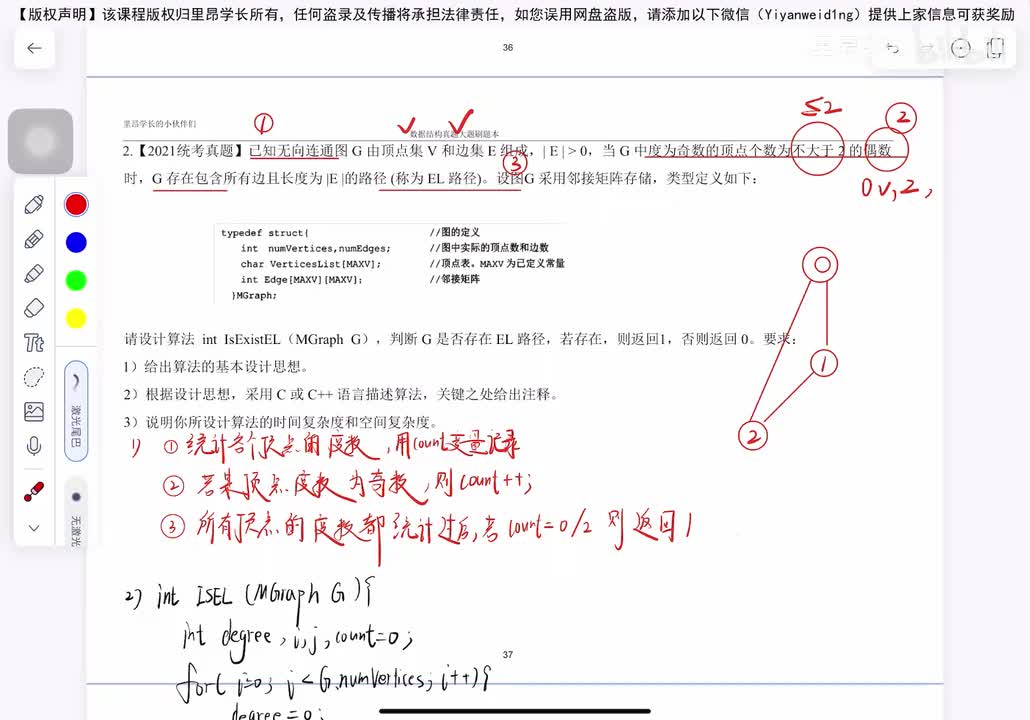 【版权声明】该课程版权归里昂学长所有，任何盗录及传播将承担法律责任，如您误用网盘盗版，请添加以下微信（Yiyanweid1ng）提供上家信息可获奖励
36
里昂学长的小伙伴们
数据结构真题大题刷题本
① ≤2 ②
2.【2021统考真题】已知无向连通图 G 由顶点集 V 和边集 E 组成，| E | > 0，当 G 中度为奇数的顶点个数为不大于 2 的偶数
③
时，G 存在包含所有边且长度为 |E |的路径 (称为 EL 路径)。设图G 采用邻接矩阵存储，类型定义如下：
0 v, 2 ,
typedef struct{ //图的定义
int numVertices,numEdges; //图中实际的顶点数和边数
char VerticesList[MAXV]; //顶点表。MAXV 为已定义常量
int Edge[MAXV][MAXV]; //邻接矩阵
}MGraph;
0
1
2
请设计算法 int IsExistEL（MGraph G），判断 G 是否存在 EL 路径，若存在，则返回1，否则返回 0。要求：
1）给出算法的基本设计思想。
2）根据设计思想，采用 C 或 C++ 语言描述算法，关键之处给出注释。
3）说明你所设计算法的时间复杂度和空间复杂度。
1) ① 统计各个顶点的度数，用count变量记录
② 若某顶点度数为奇数，则 count++;
③ 所有顶点的度数都统计过后，若 count=0/2 则返回1
2) int ISEL (MGraph G){
int degree, i, j, count=0;
for( i=0; i<G.numVertices; i++){
degree=0;
37
Tt
激光尾巴
无激光